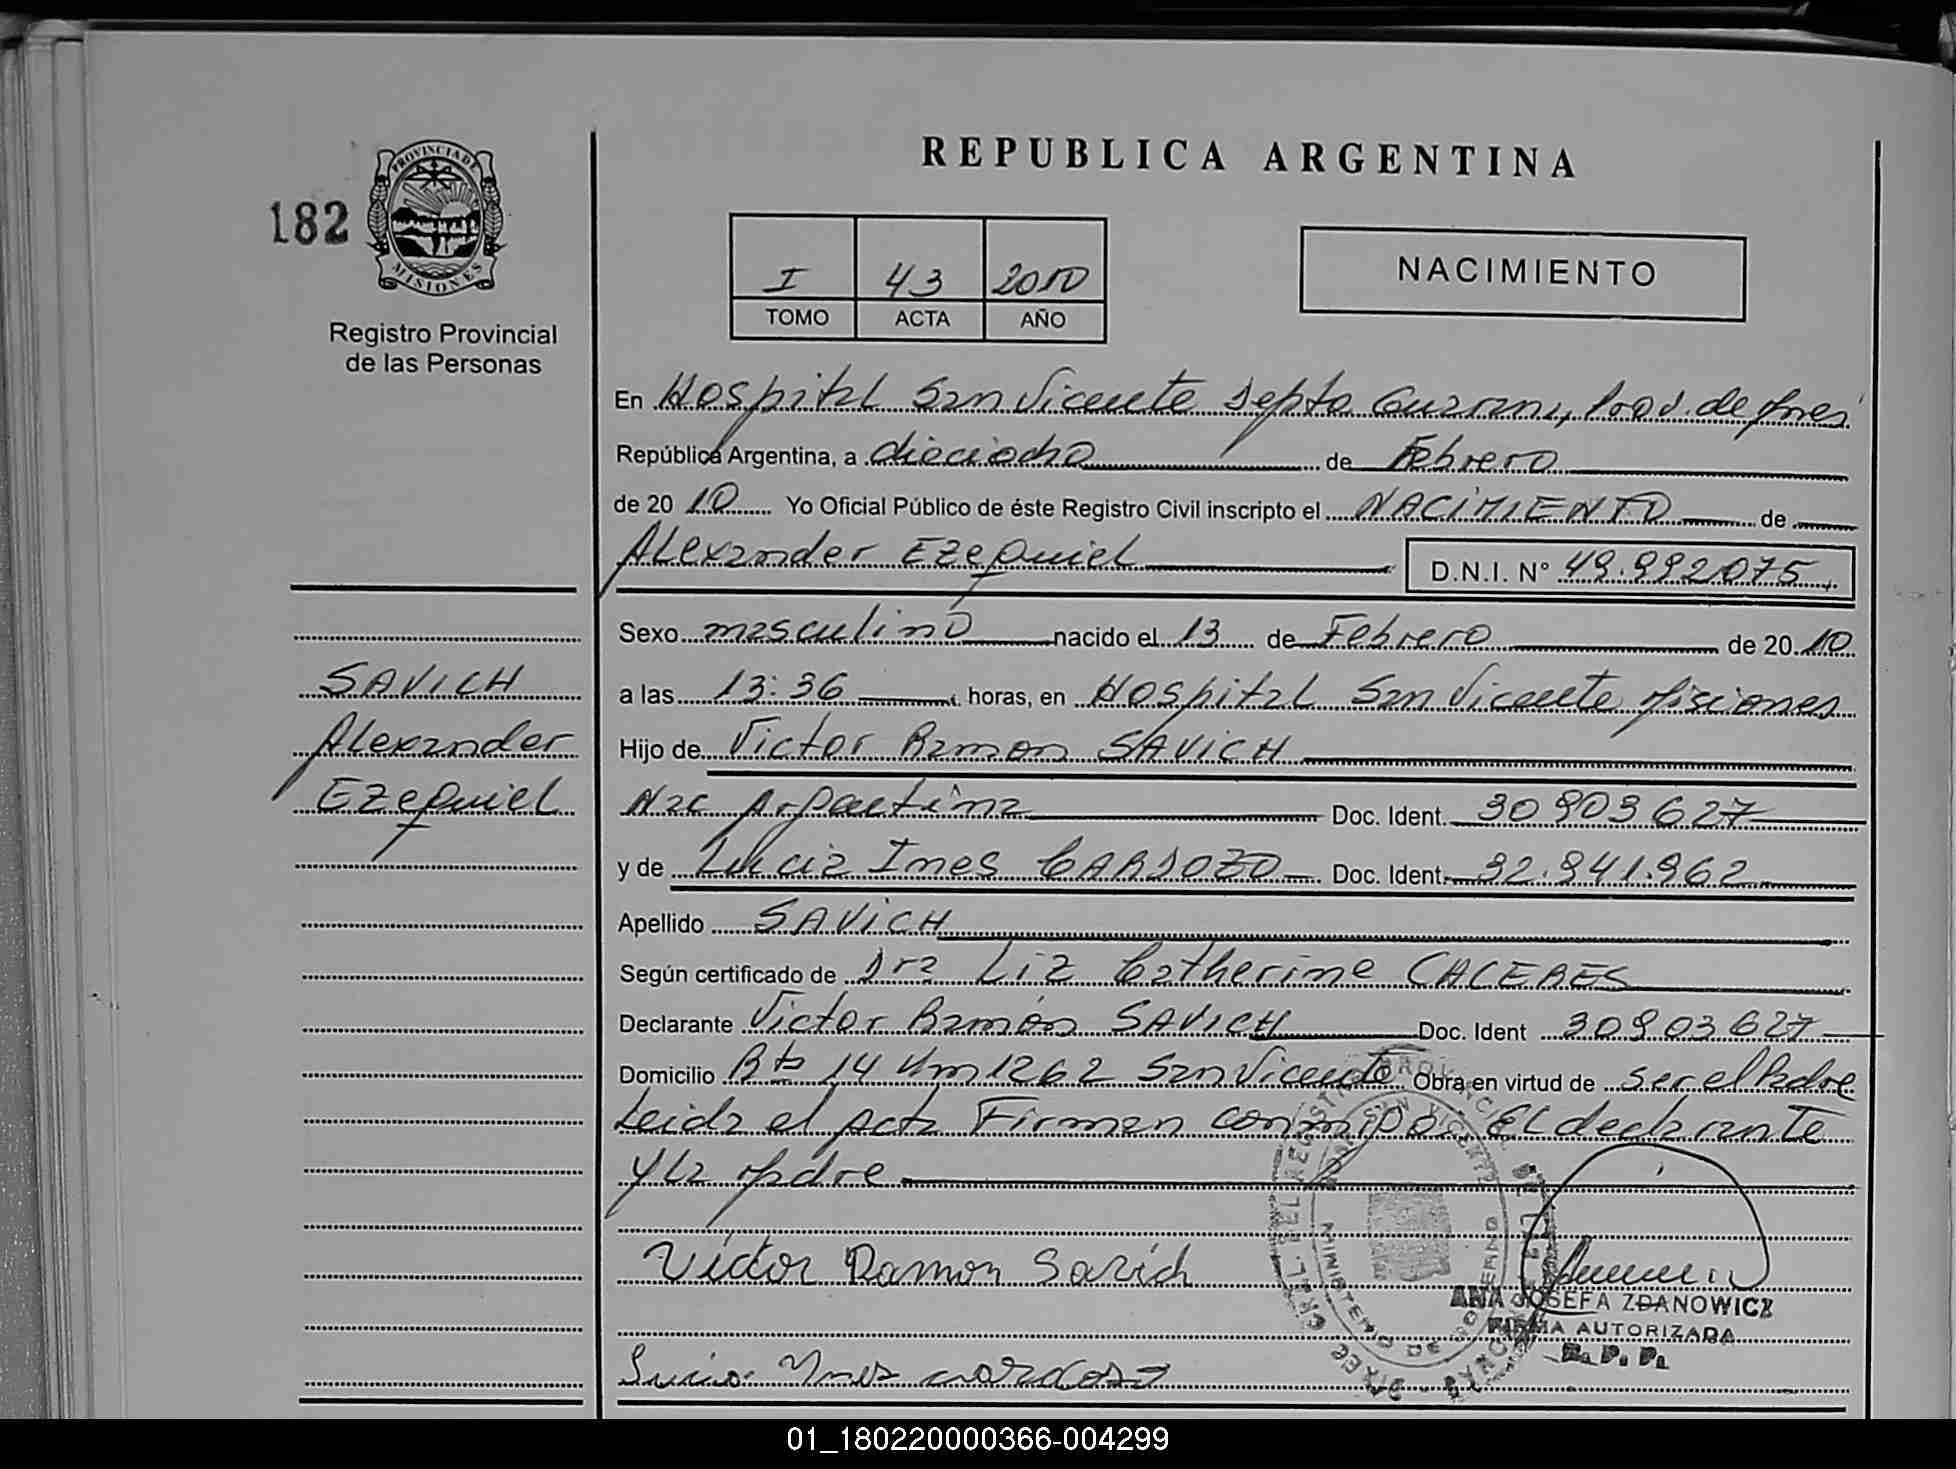 REPUBLICA ARGENTINA
182
PROVINCIA DE
MISIONES
Registro Provincial
de las Personas
I 43 2010
TOMO ACTA AÑO
NACIMIENTO
En Hospital San Vicente Depto Guarani, Prov. de Mnes
República Argentina, a dieciocho de Febrero
de 2010 Yo Oficial Público de éste Registro Civil inscripto el NACIMIENTO de
Alexander Ezequiel D.N.I. N° 49.992075
Sexo masculino nacido el 13 de Febrero de 2010
SAVICH
Alexander
Ezequiel
a las 13:36 horas, en Hospital San Vicente Misiones
Hijo de Victor Ramon SAVICH
Nac Argentina Doc. Ident. 30903627
y de Lucia Ines CARDOZO Doc. Ident.
Apellido SAVICH
Según certificado de Dra Liz Catherine CACERES
Declarante Victor Ramón SAVICH Doc. Ident 30903627
Domicilio Rta 14 Km 1262 San Vicente Obra en virtud de ser el Padre
Leida el Acta Firman conmigo El declarante
y la Madre
Victor Ramon Savich
ANA JOSEFA ZDANOWICZ
FIRMA AUTORIZADA
R. P. P.
Lucia Ynes cardozo
MINISTERIO DE GOBIERNO
SAN VICENTE
01_180220000366-004299